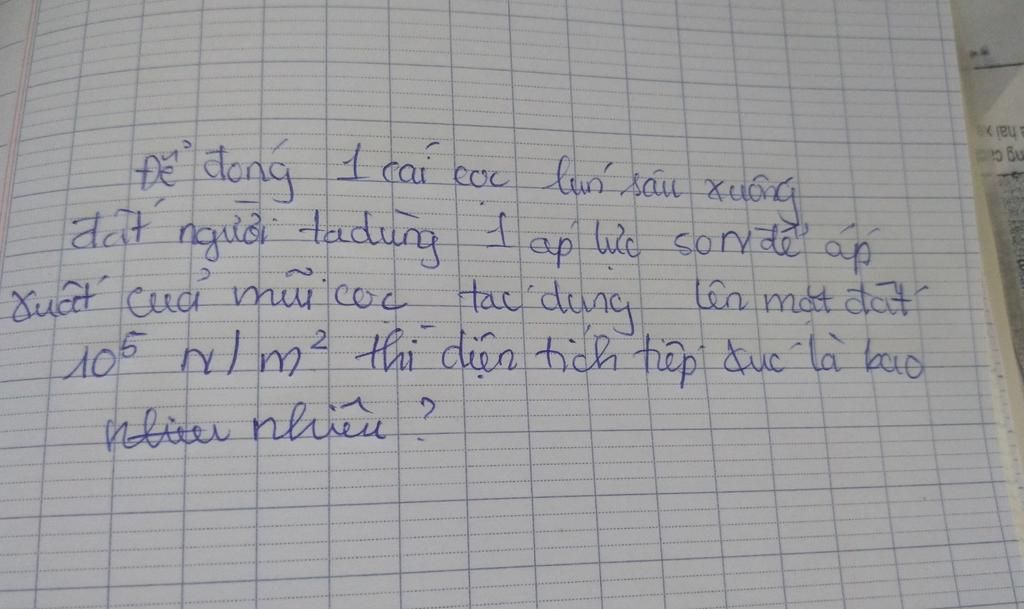 Để đóng 1 cái cọc lún sâu xuống
đất người ta dùng 1 áp lực 50N để áp
xuất của mũi cọc tác dụng lên mặt đất
10⁵ N/m² thì diện tích tiếp xúc là bao
nhiêu ?